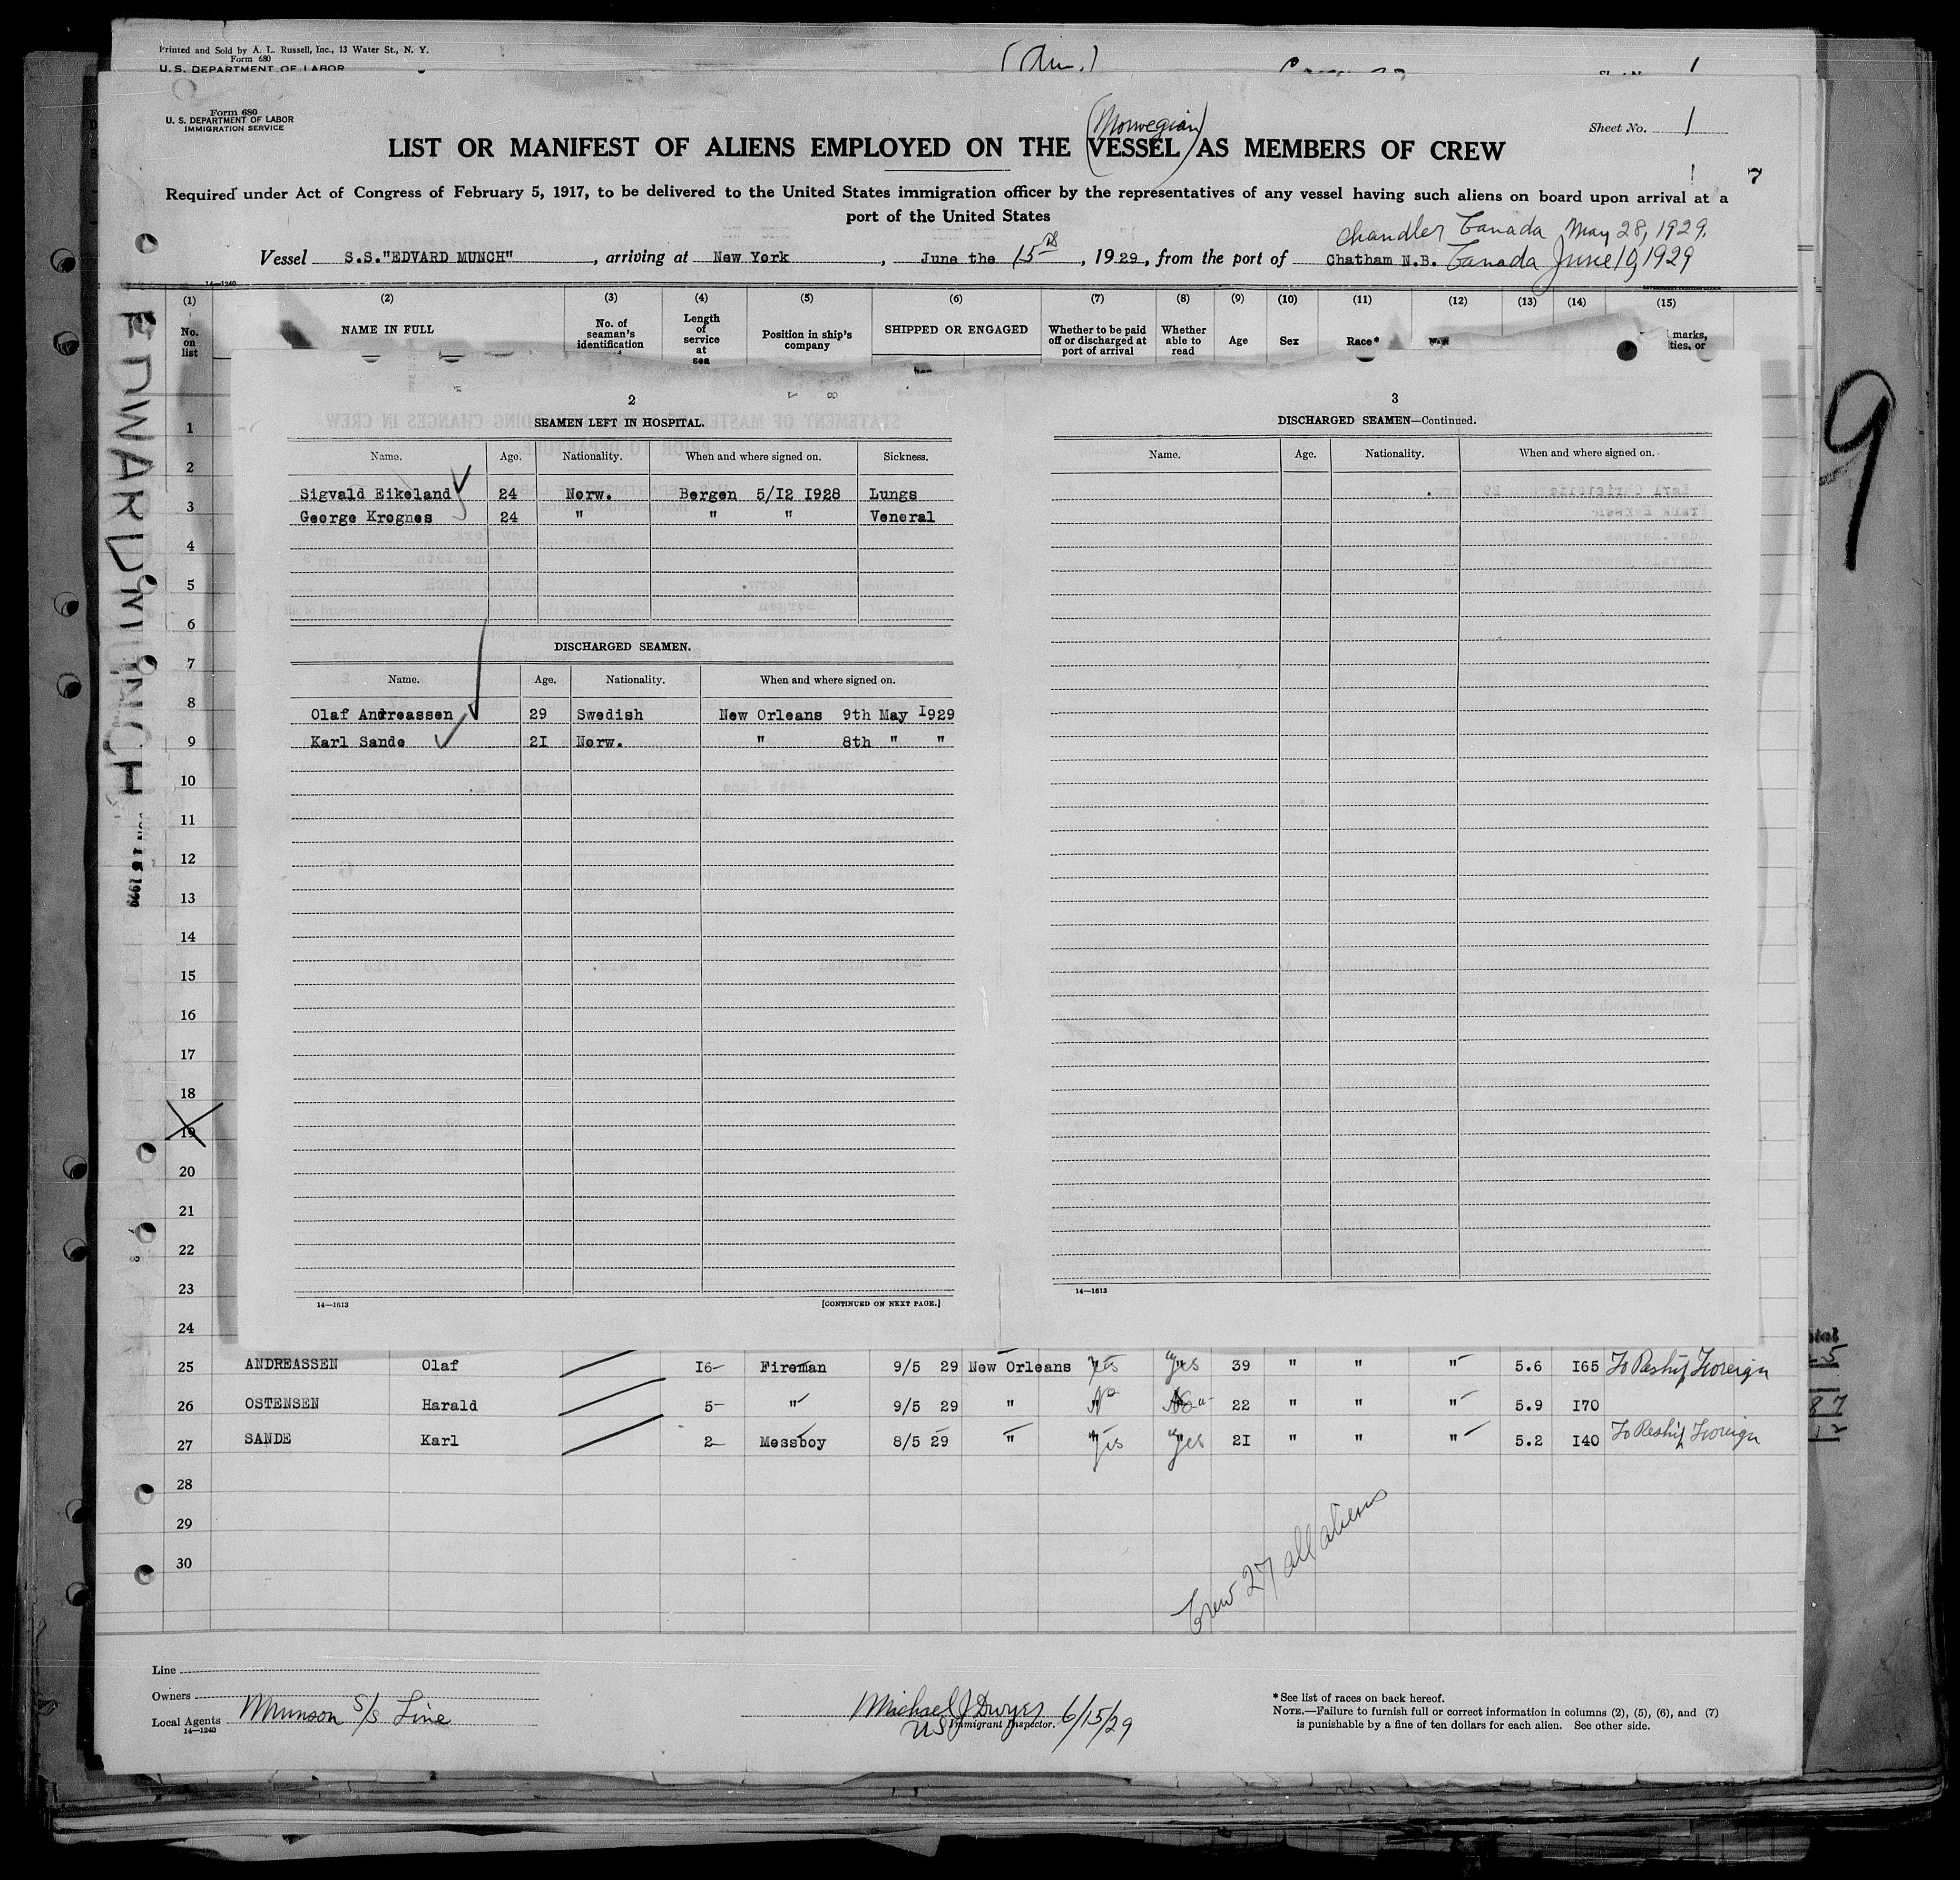 Printed and Sold by A. L. Russell, Inc., 13 Water St., N. Y.
Form 680
U. S. DEPARTMENT OF LABOR
1
Form 680
U. S. DEPARTMENT OF LABOR
IMMIGRATION SERVICE
(Norwegian)
Sheet No. 1
LIST OR MANIFEST OF ALIENS EMPLOYED ON THE VESSEL AS MEMBERS OF CREW
1 7
Required under Act of Congress of February 5, 1917, to be delivered to the United States immigration officer by the representatives of any vessel having such aliens on board upon arrival at a
port of the United States
Chandler Canada May 28, 1929.
Vessel S.S."EDVARD MUNCH", arriving at New York, June the 15th, 1929, from the port of Chatham N.B. Canada June 10, 1929
14—1240
(1) (2) (3) (4) (5) (6) (7) (8) (9) (10) (11) (12) (13) (14) (15)
No. on list
NAME IN FULL
No. of seaman's identification
Length of service at sea
Position in ship's company
SHIPPED OR ENGAGED
Whether to be paid off or discharged at port of arrival
Whether able to read
Age
Sex
Race*
marks,
EDWARD MUNCH
9
1
2
3
4
5
6
7
8
9
10
11
12
13
14
15
16
17
18
19
20
21
22
23
24
2
SEAMEN LEFT IN HOSPITAL.
Name. Age. Nationality. When and where signed on. Sickness.
Sigvald Eikeland 24 Norw. Bergen 5/I2 I928 Lungs
George Krognes 24 " " " Veneral
DISCHARGED SEAMEN.
Name. Age. Nationality. When and where signed on.
Olaf Andreassen 29 Swedish New Orleans 9th May I929
Karl Sande 2I Norw. " 8th " "
14—1613 [CONTINUED ON NEXT PAGE.]
3
DISCHARGED SEAMEN—Continued.
Name. Age. Nationality. When and where signed on.
14—1613
25 ANDREASSEN Olaf I6 Fireman 9/5 29 New Orleans Yes Yes 39 " " " 5.6 I65 To Reship Foreign
26 OSTENSEN Harald 5 " 9/5 29 " No 22 " " " 5.9 I70
27 SANDE Karl 2 Messboy 8/5 29 " Yes Yes 2I " " " 5.2 I40 To Reship Foreign
28
29
30
Crew 27 all aliens
Line
Owners
Local Agents Munson S/S Line
14—1240
Michael J Dwyer 6/15/29
US Immigrant Inspector.
*See list of races on back hereof.
NOTE.—Failure to furnish full or correct information in columns (2), (5), (6), and (7)
is punishable by a fine of ten dollars for each alien. See other side.